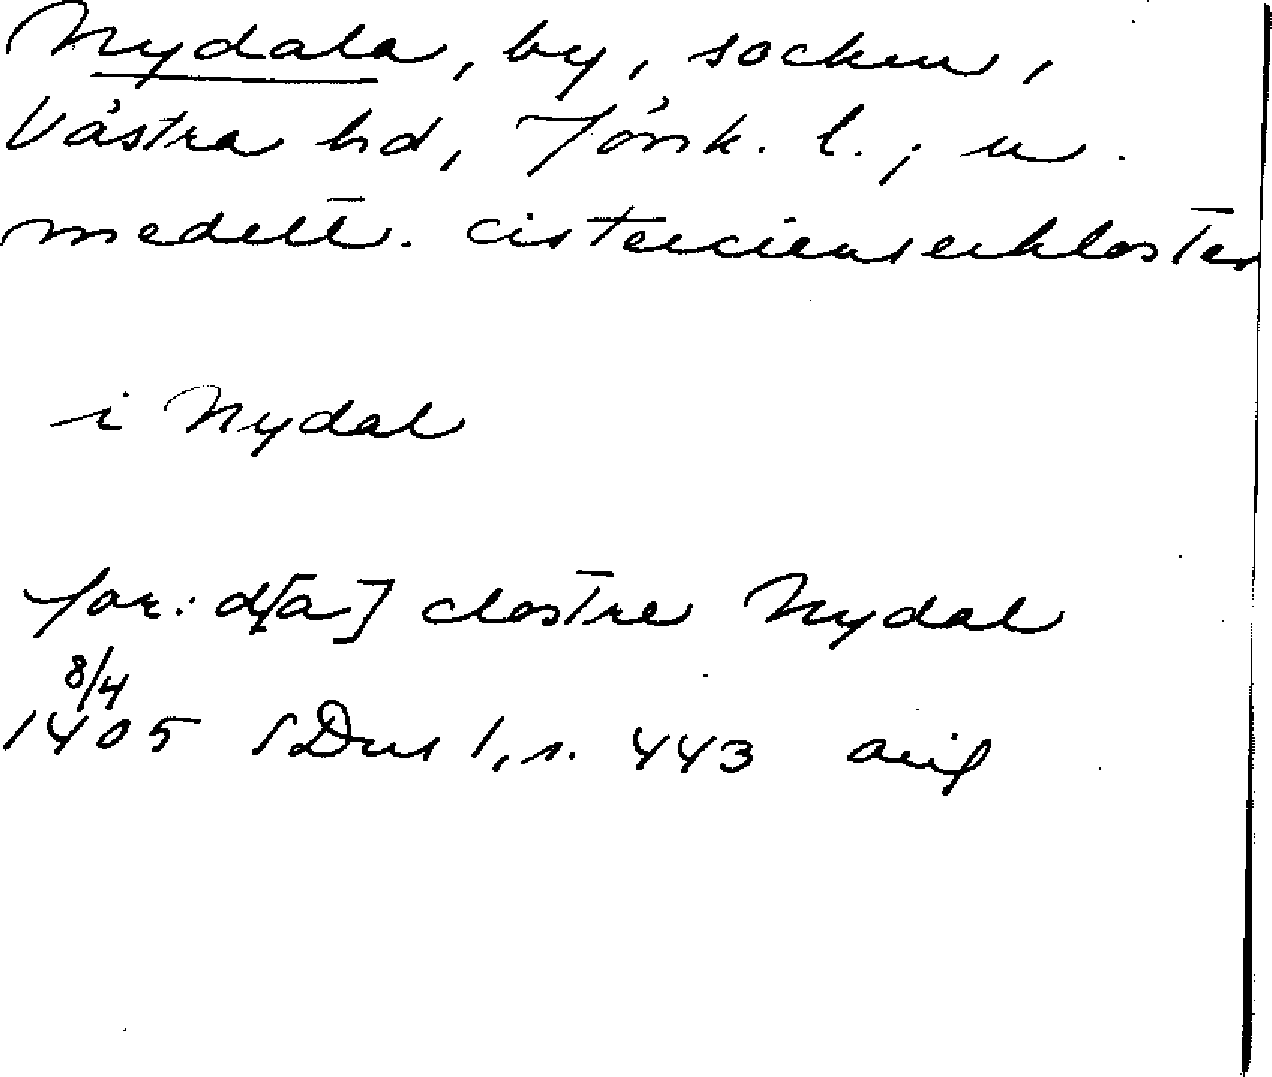 Nydala, by, socken,
Västra hd, Jönk. l.; u.
medelt. cistercienserkloster
i Nydal
for: d[a] clostre Nydal
8/4
1405 SDns 1, s. 443 avs